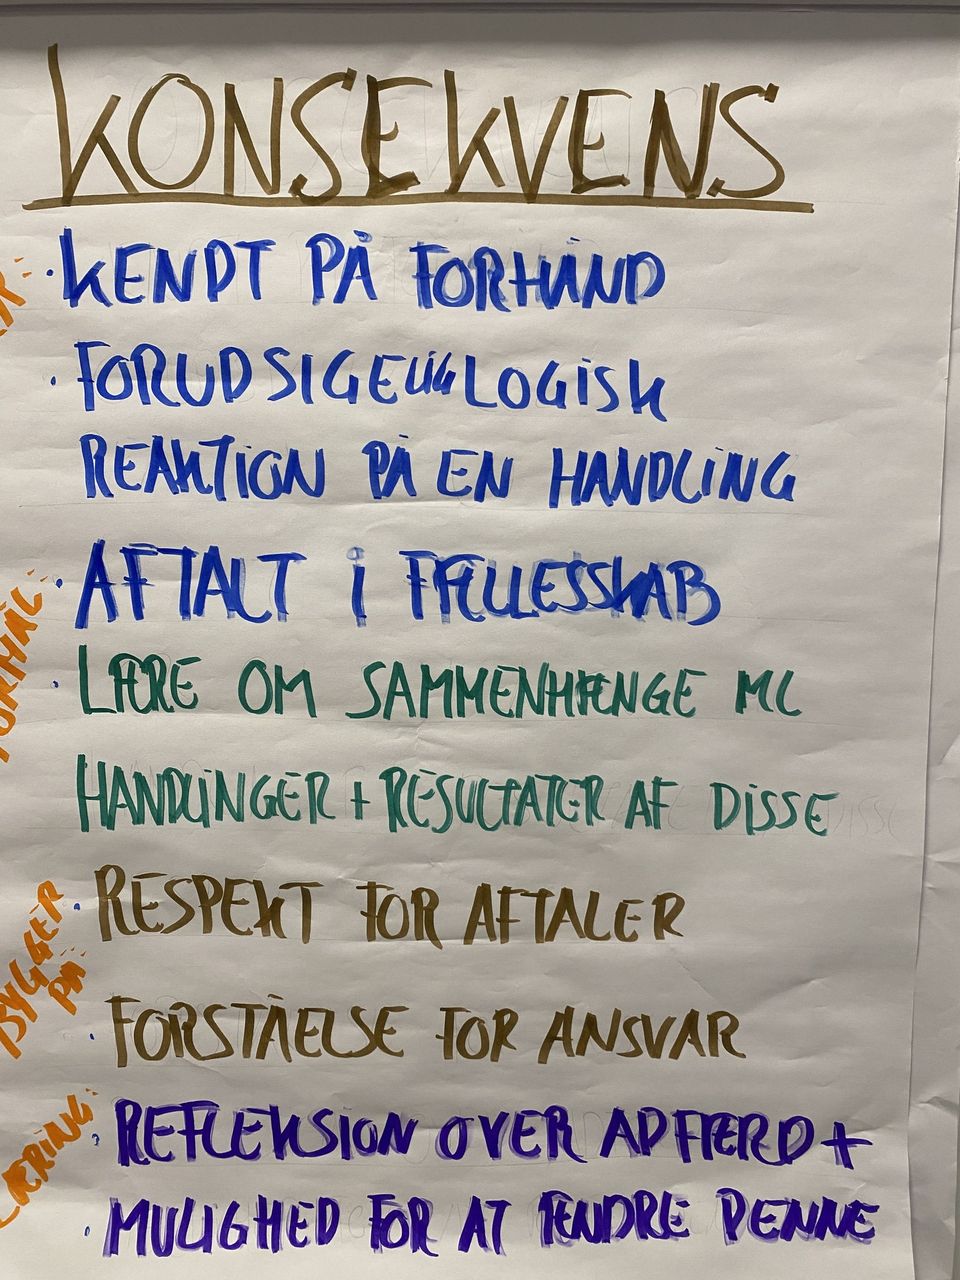 KONSEKVENS
· KENDT PÅ FORHÅND
· FORUDSIGELIG LOGISK
REAKTION PÅ EN HANDLING
· AFTALT I FÆLLESSKAB
FORMÅL:
· LÆRE OM SAMMENHÆNGE ML
HANDLINGER + RESULTATER AF DISSE
BYGGER
PÅ:
· RESPEKT FOR AFTALER
· FORSTÅELSE FOR ANSVAR
LÆRING:
· REFLEKSION OVER ADFÆRD +
· MULIGHED FOR AT ÆNDRE DENNE